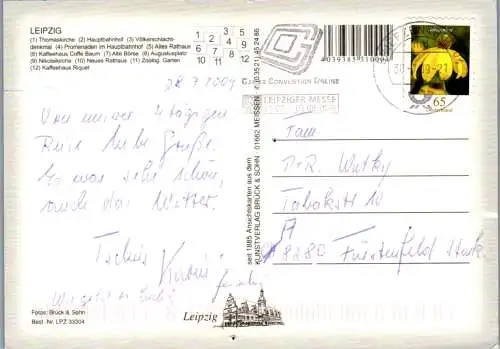 LEIPZIG
(1) Thomaskirche (2) Hauptbahnhof (3) Völkerschlacht-
denkmal (4) Promenaden im Hauptbahnhof (5) Altes Rathaus
(6) Kaffeehaus Coffe Baum (7) Alte Börse (8) Augustusplatz
(9) Nikolaikirche (10) Neues Rathaus (11) Zoolog. Garten
(12) Kaffeehaus Riquet
1 2 3
4 5
6 7 8 9
10 11 12
28.7.2009
Von meiner 4 tägigen
Reise liebe Grüße.
Es war sehr schön,
auch das Wetter.
Tschüs
Wie geht es
Fotos: Brück & Sohn
Best. Nr. LPZ 33304
Leipzig
seit 1885 Ansichtskarten aus dem
KUNSTVERLAG BRÜCK & SOHN · 01662 MEISSEN
GAMES CONVENTION ONLINE
LEIPZIGER MESSE
65
Fam.
Tabakstr 10
A
8280 Fürstenfeld